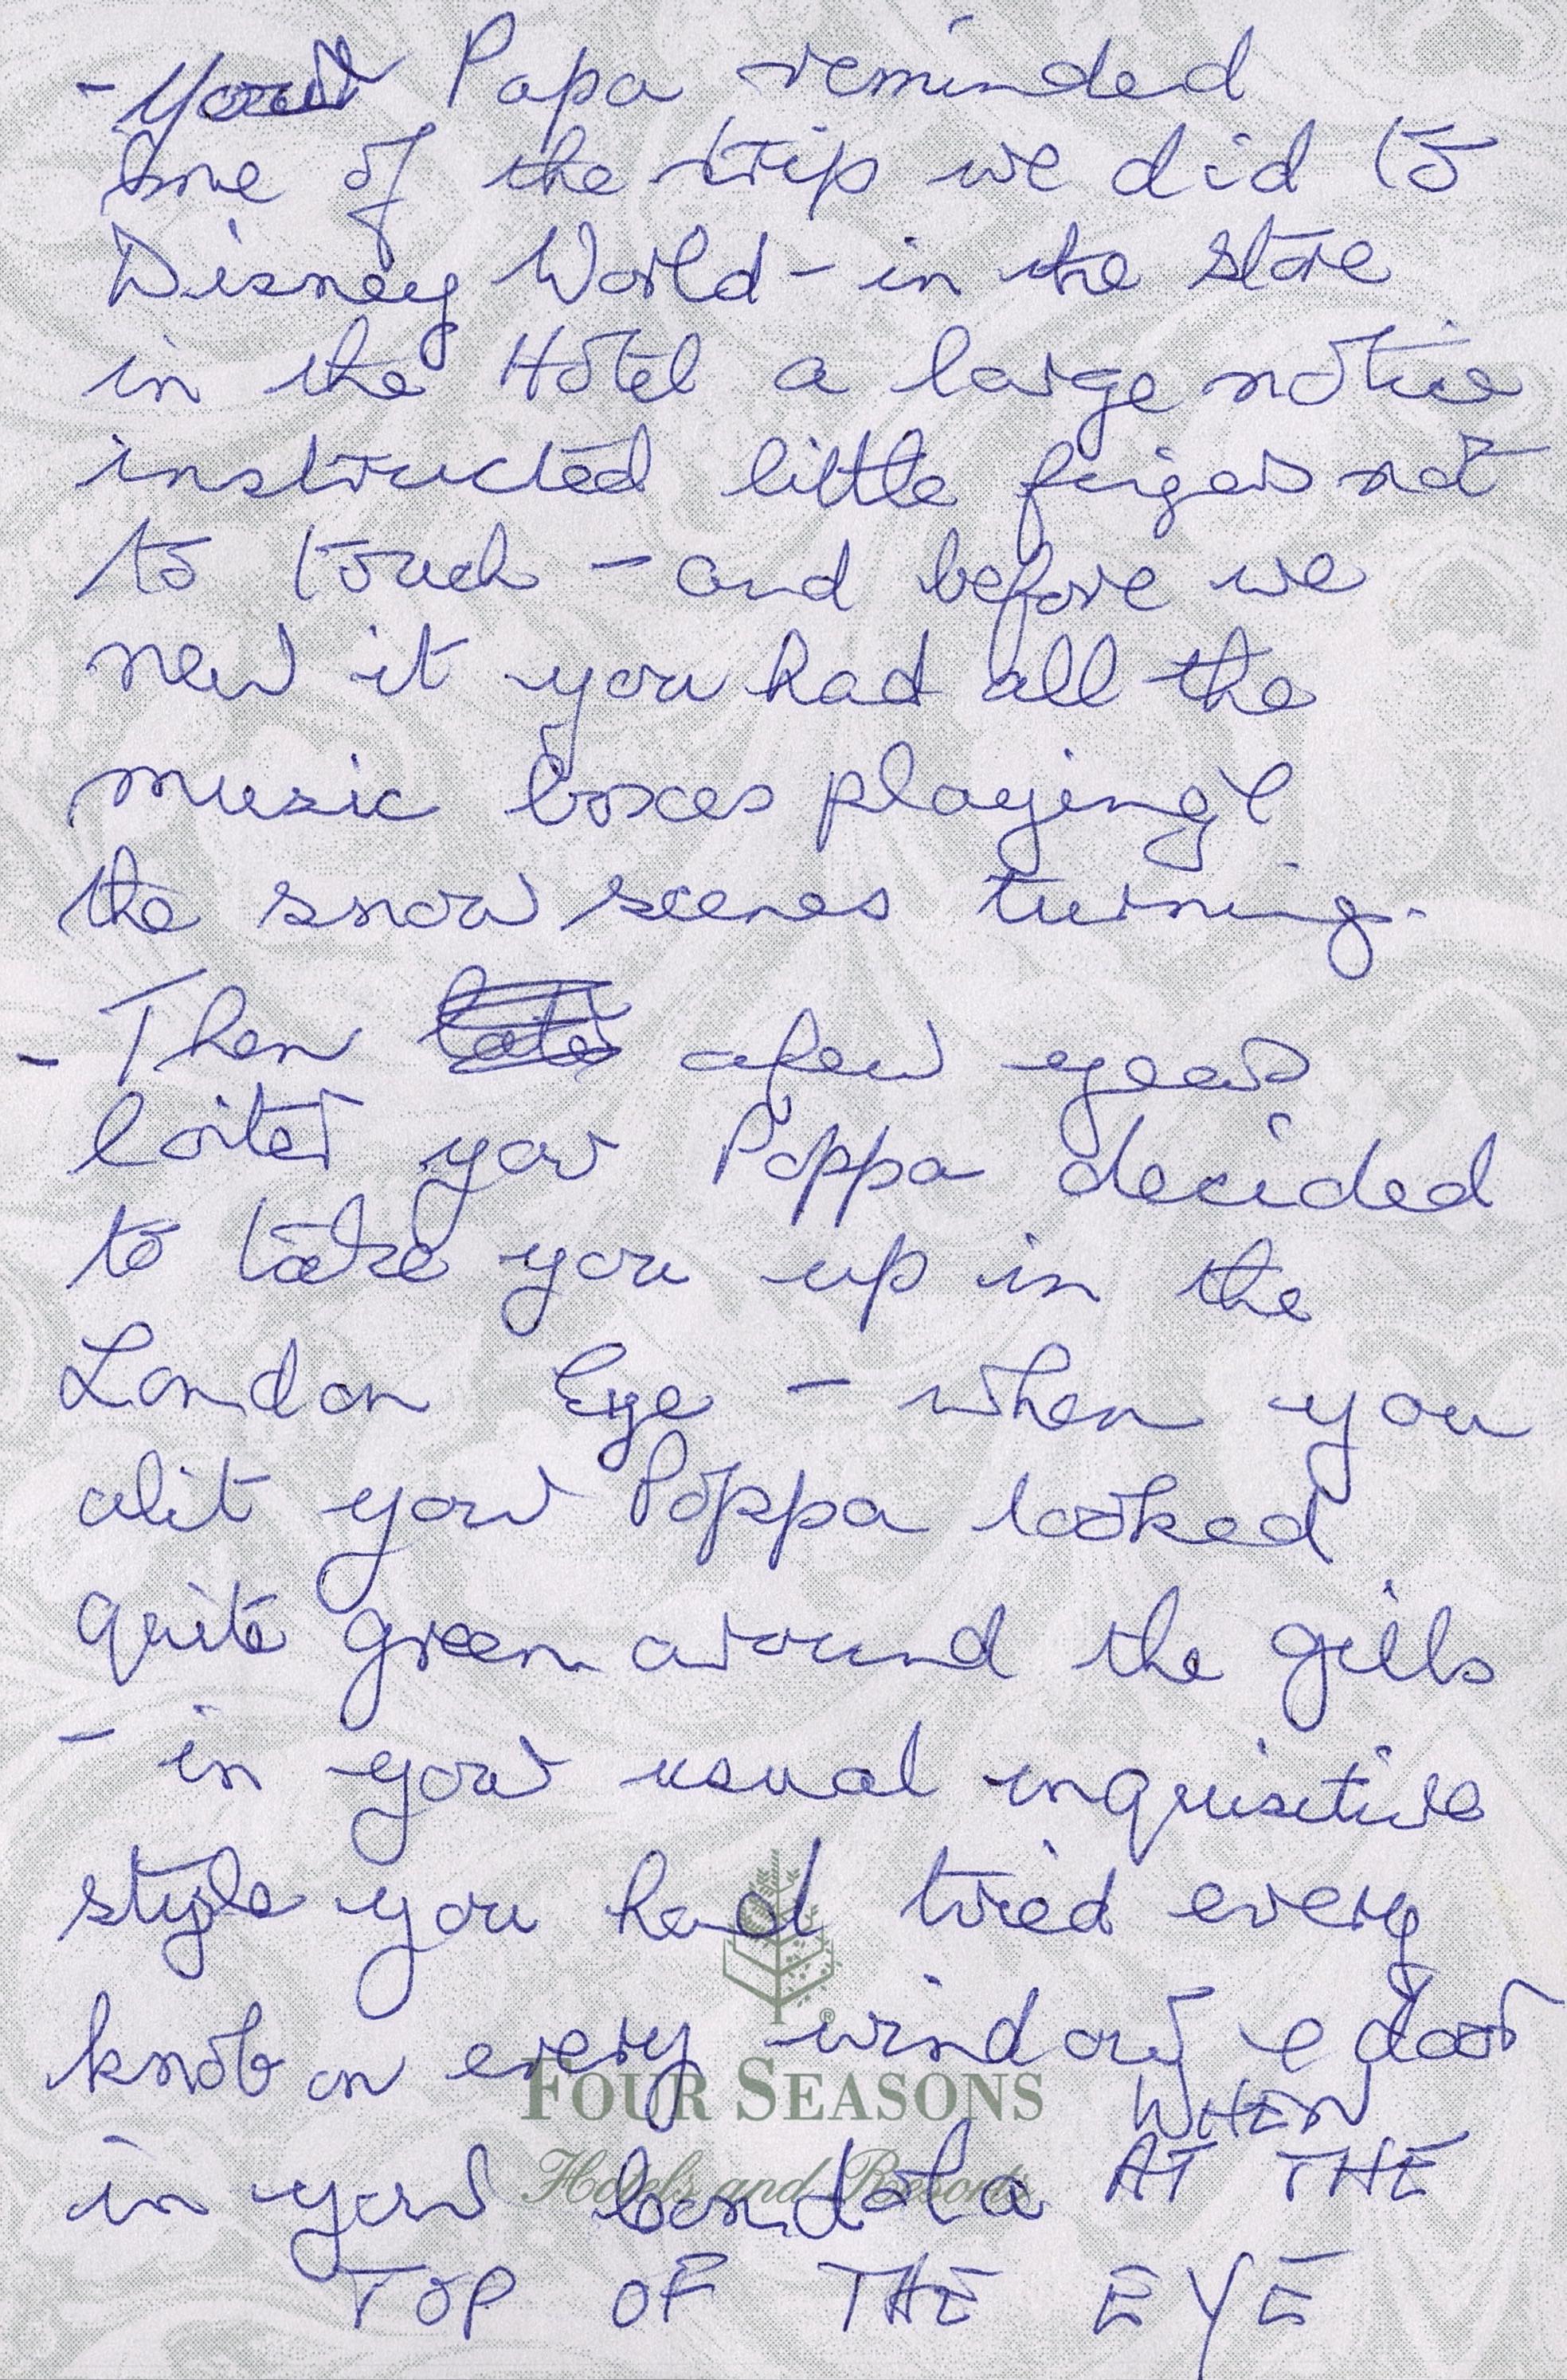 - Your Papa reminded
me of the trip we did to
Disney World - in the store
in the Hotel a large notice
instructed little fingers not
to touch - and before we
new it you had all the
music boxes playing &
the snow scenes turning.
- Then later afew years
later your Poppa decided
to take you up in the
London Eye - when you
alit your Poppa looked
quite green around the gills
- in your usual inquisitive
style you had tried every
knob on every window & door
in your bondola WHEN
AT THE
TOP OF THE EYE
FOUR SEASONS
Hotels and Resorts